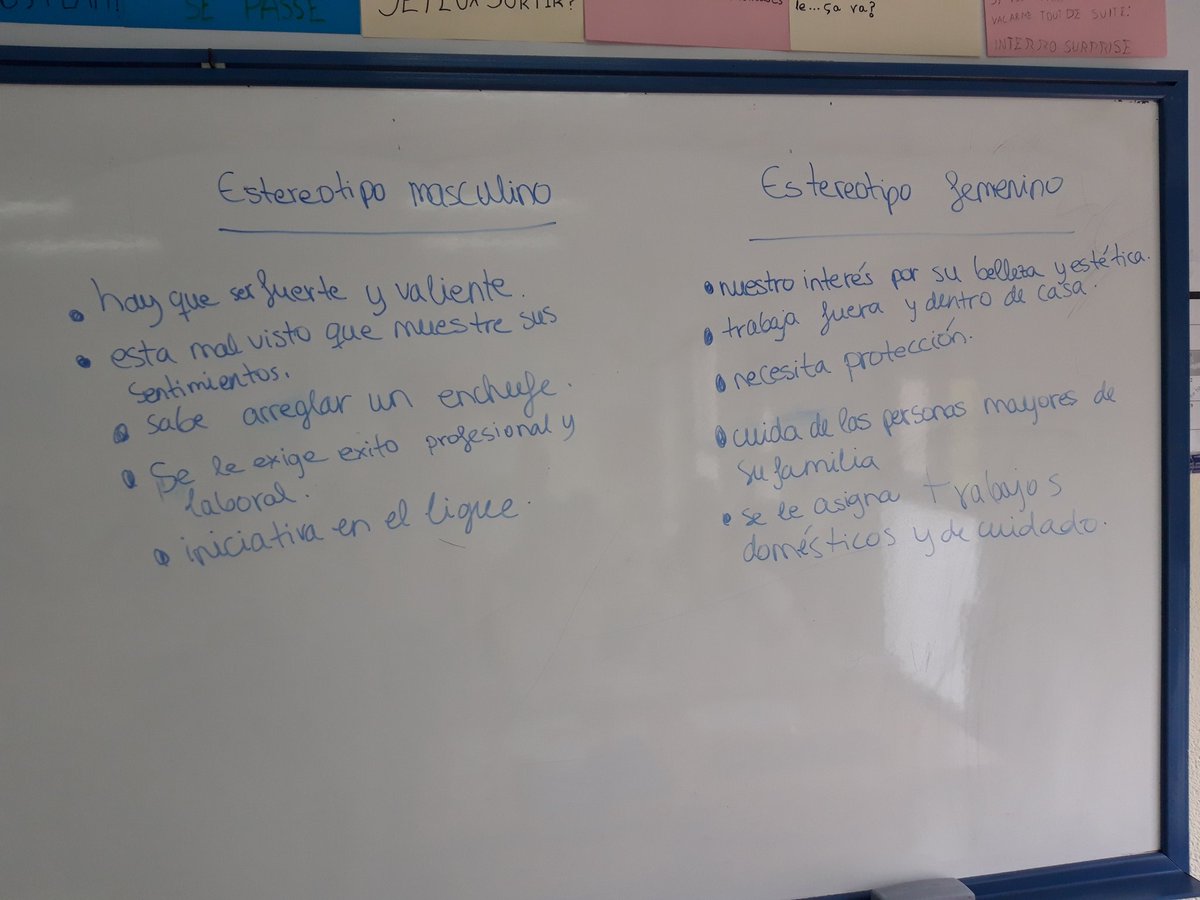 SE PASSE
JE VEUX SORTIR?
le... ça va?
VACARME TOUT DE SUITE!
INTERRO SURPRISE
Estereotipo masculino
• hay que ser fuerte y valiente.
• esta mal visto que muestre sus
sentimientos.
• sabe arreglar un enchufe.
• Se le exige exito profesional y
laboral.
• iniciativa en el ligue.
Estereotipo femenino
• nuestro interés por su belleza y estética.
• trabaja fuera y dentro de casa.
• necesita protección.
• cuida de las personas mayores de
su familia
• se le asigna trabajos
domésticos y de cuidado.